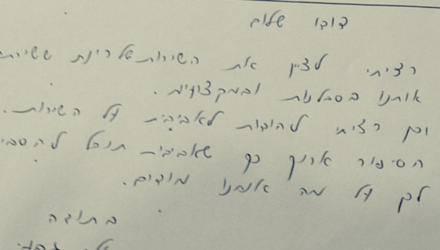 דודו שלום
רציתי לציין את השירות אלרינת ששירת
אותנו בסבלנות ובמקצועיות.
וכן רציתי להודות לאביבית על השירות.
הסיפור ארוך כך שאביבית תוכל להסבי
לך על מה אנחנו מודים.
בתודה